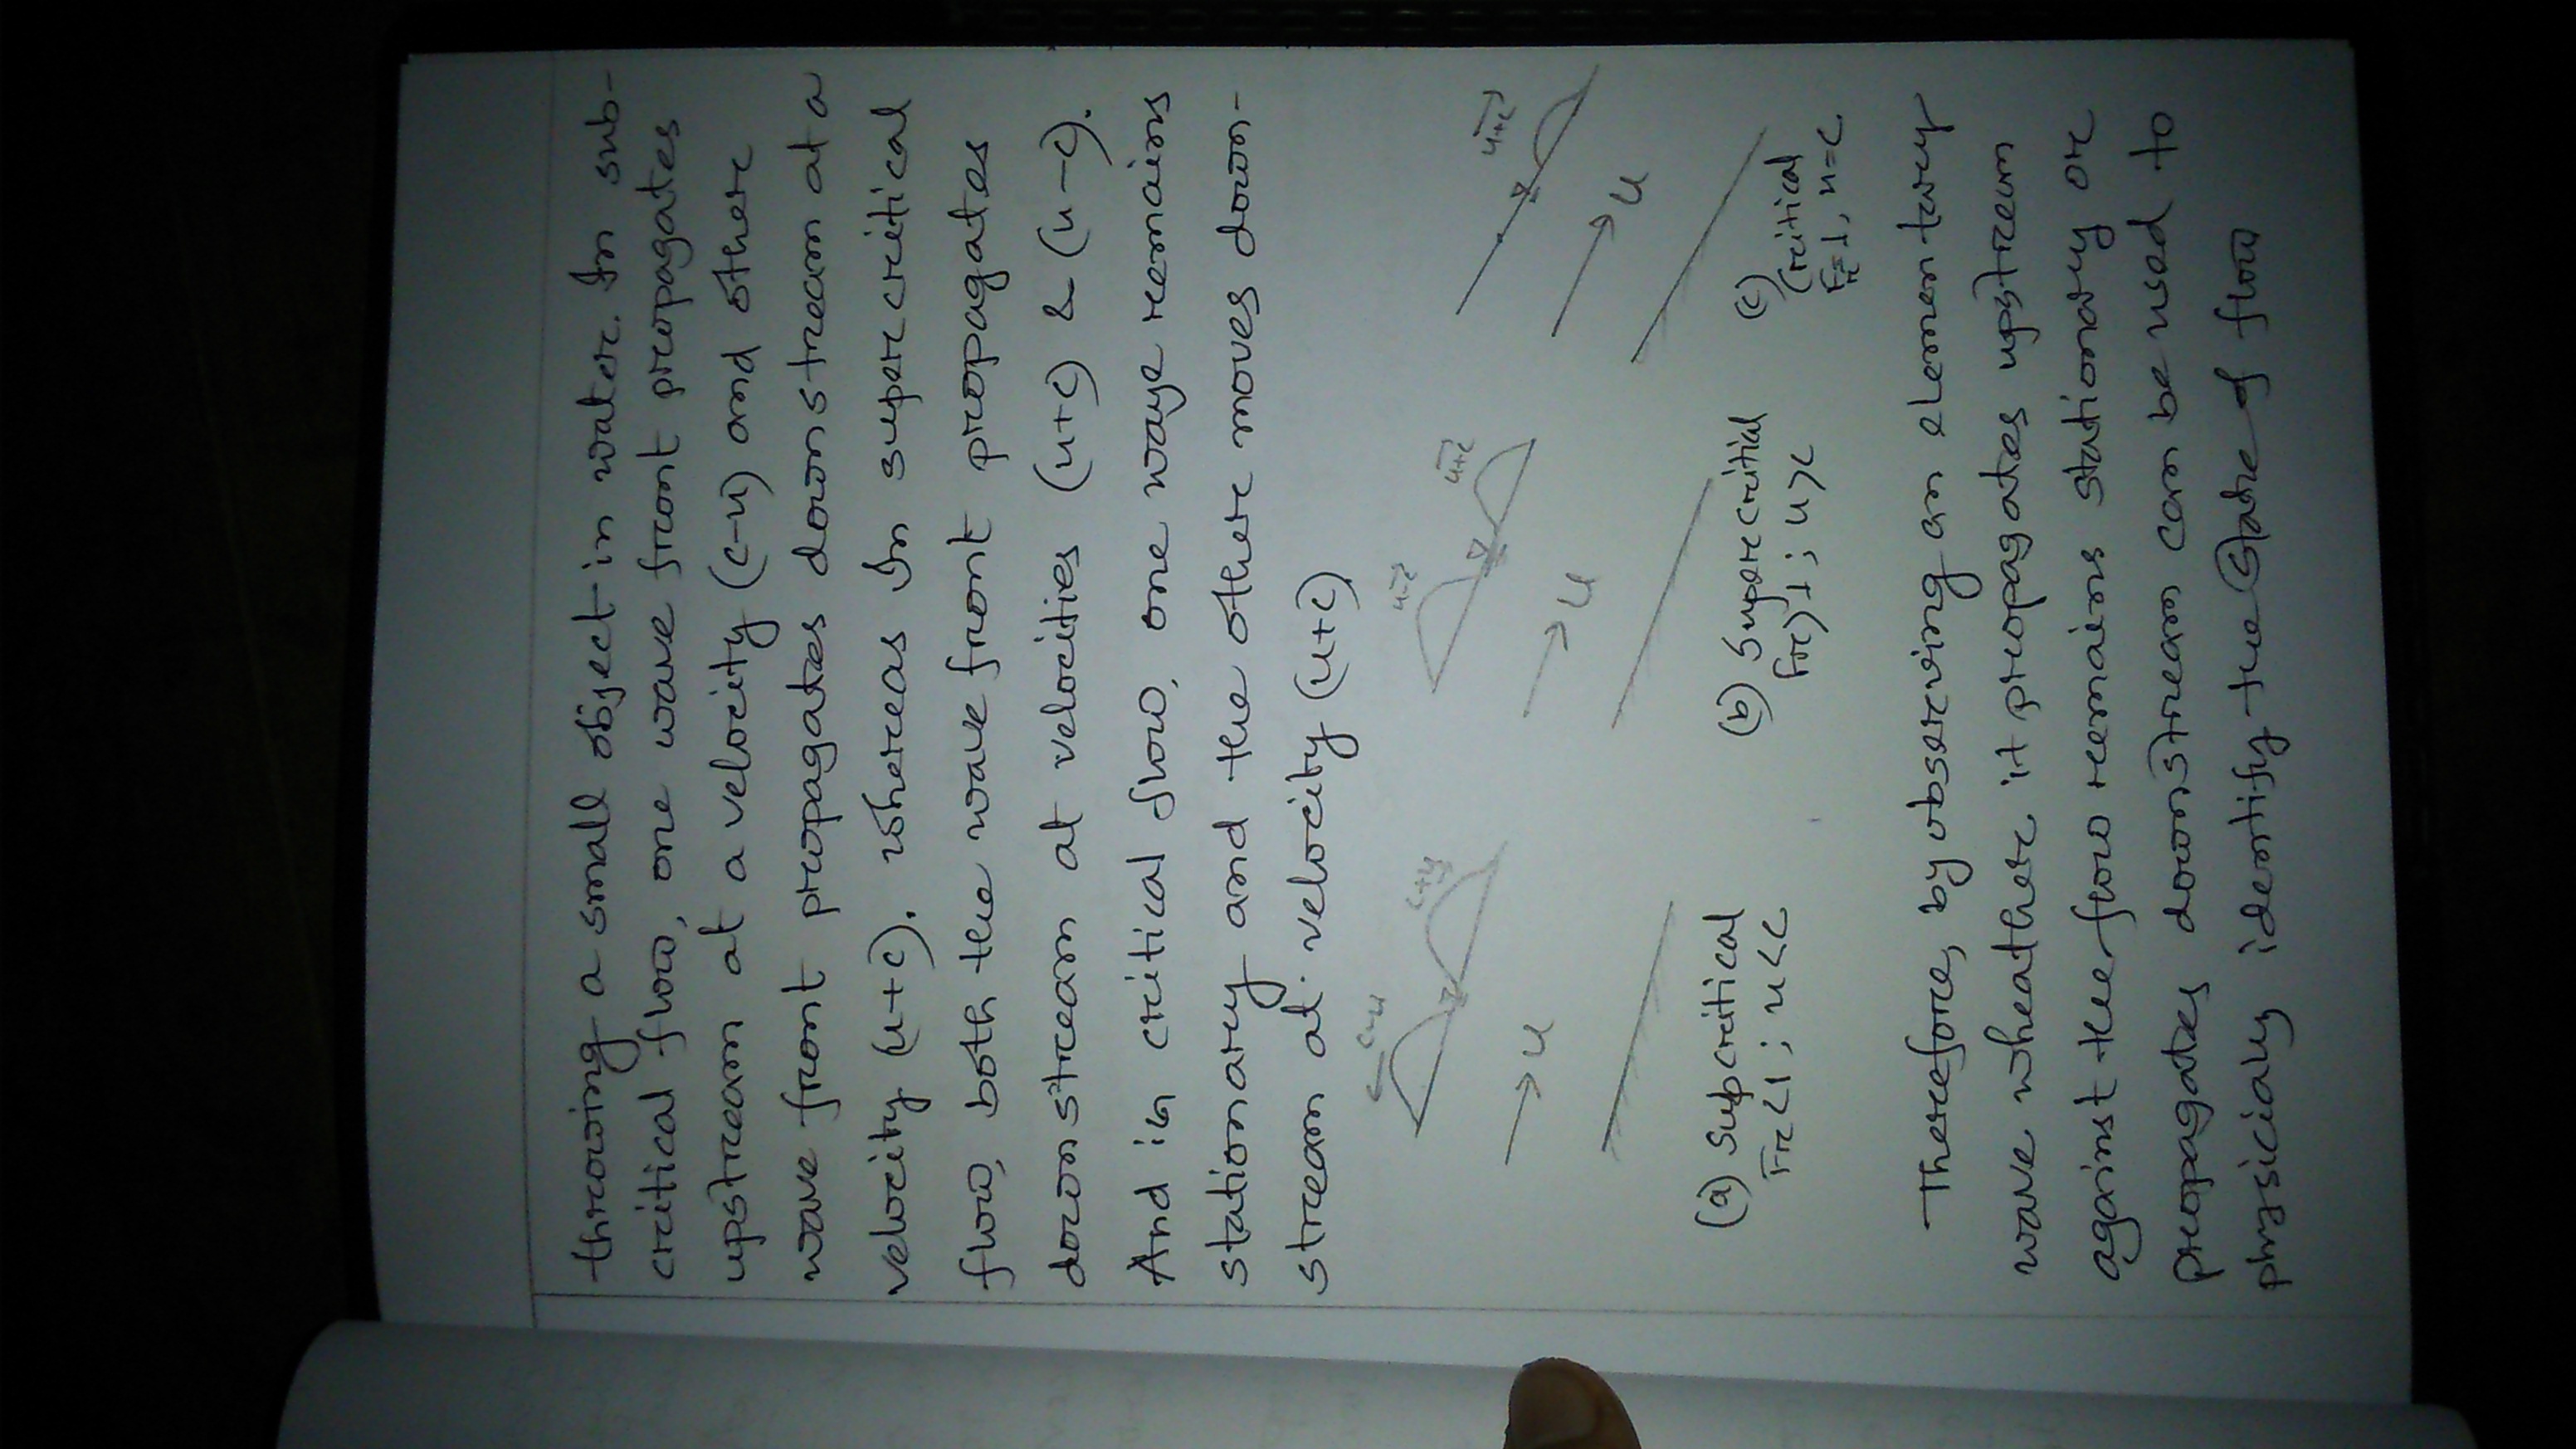 throwing a small object in water. In sub-
critical flow, one wave front propagates
upstream at a velocity (c-u) and other
wave front propagates downstream at a
velocity (u+c). whereas In supercritical
flow, both the wave front propagates
downstream at velocities (u+c) & (u-c).
And in critical flow, one wave remains
stationary and the other moves down-
stream at velocity (u+c)
c-u
c+u
u-c
u+c
u+c
u
u
u
(a) Subcritical
Fr<1 ; u<c
(b) Supercritial
Fr>1 ; u>c
(c)
Critical
Fr=1, u=c
Therefore, by observing an elementary
wave wheather it propagates upstream
against the flow remains stationary or
propagates downstream can be used to
physicialy identify the state of flow